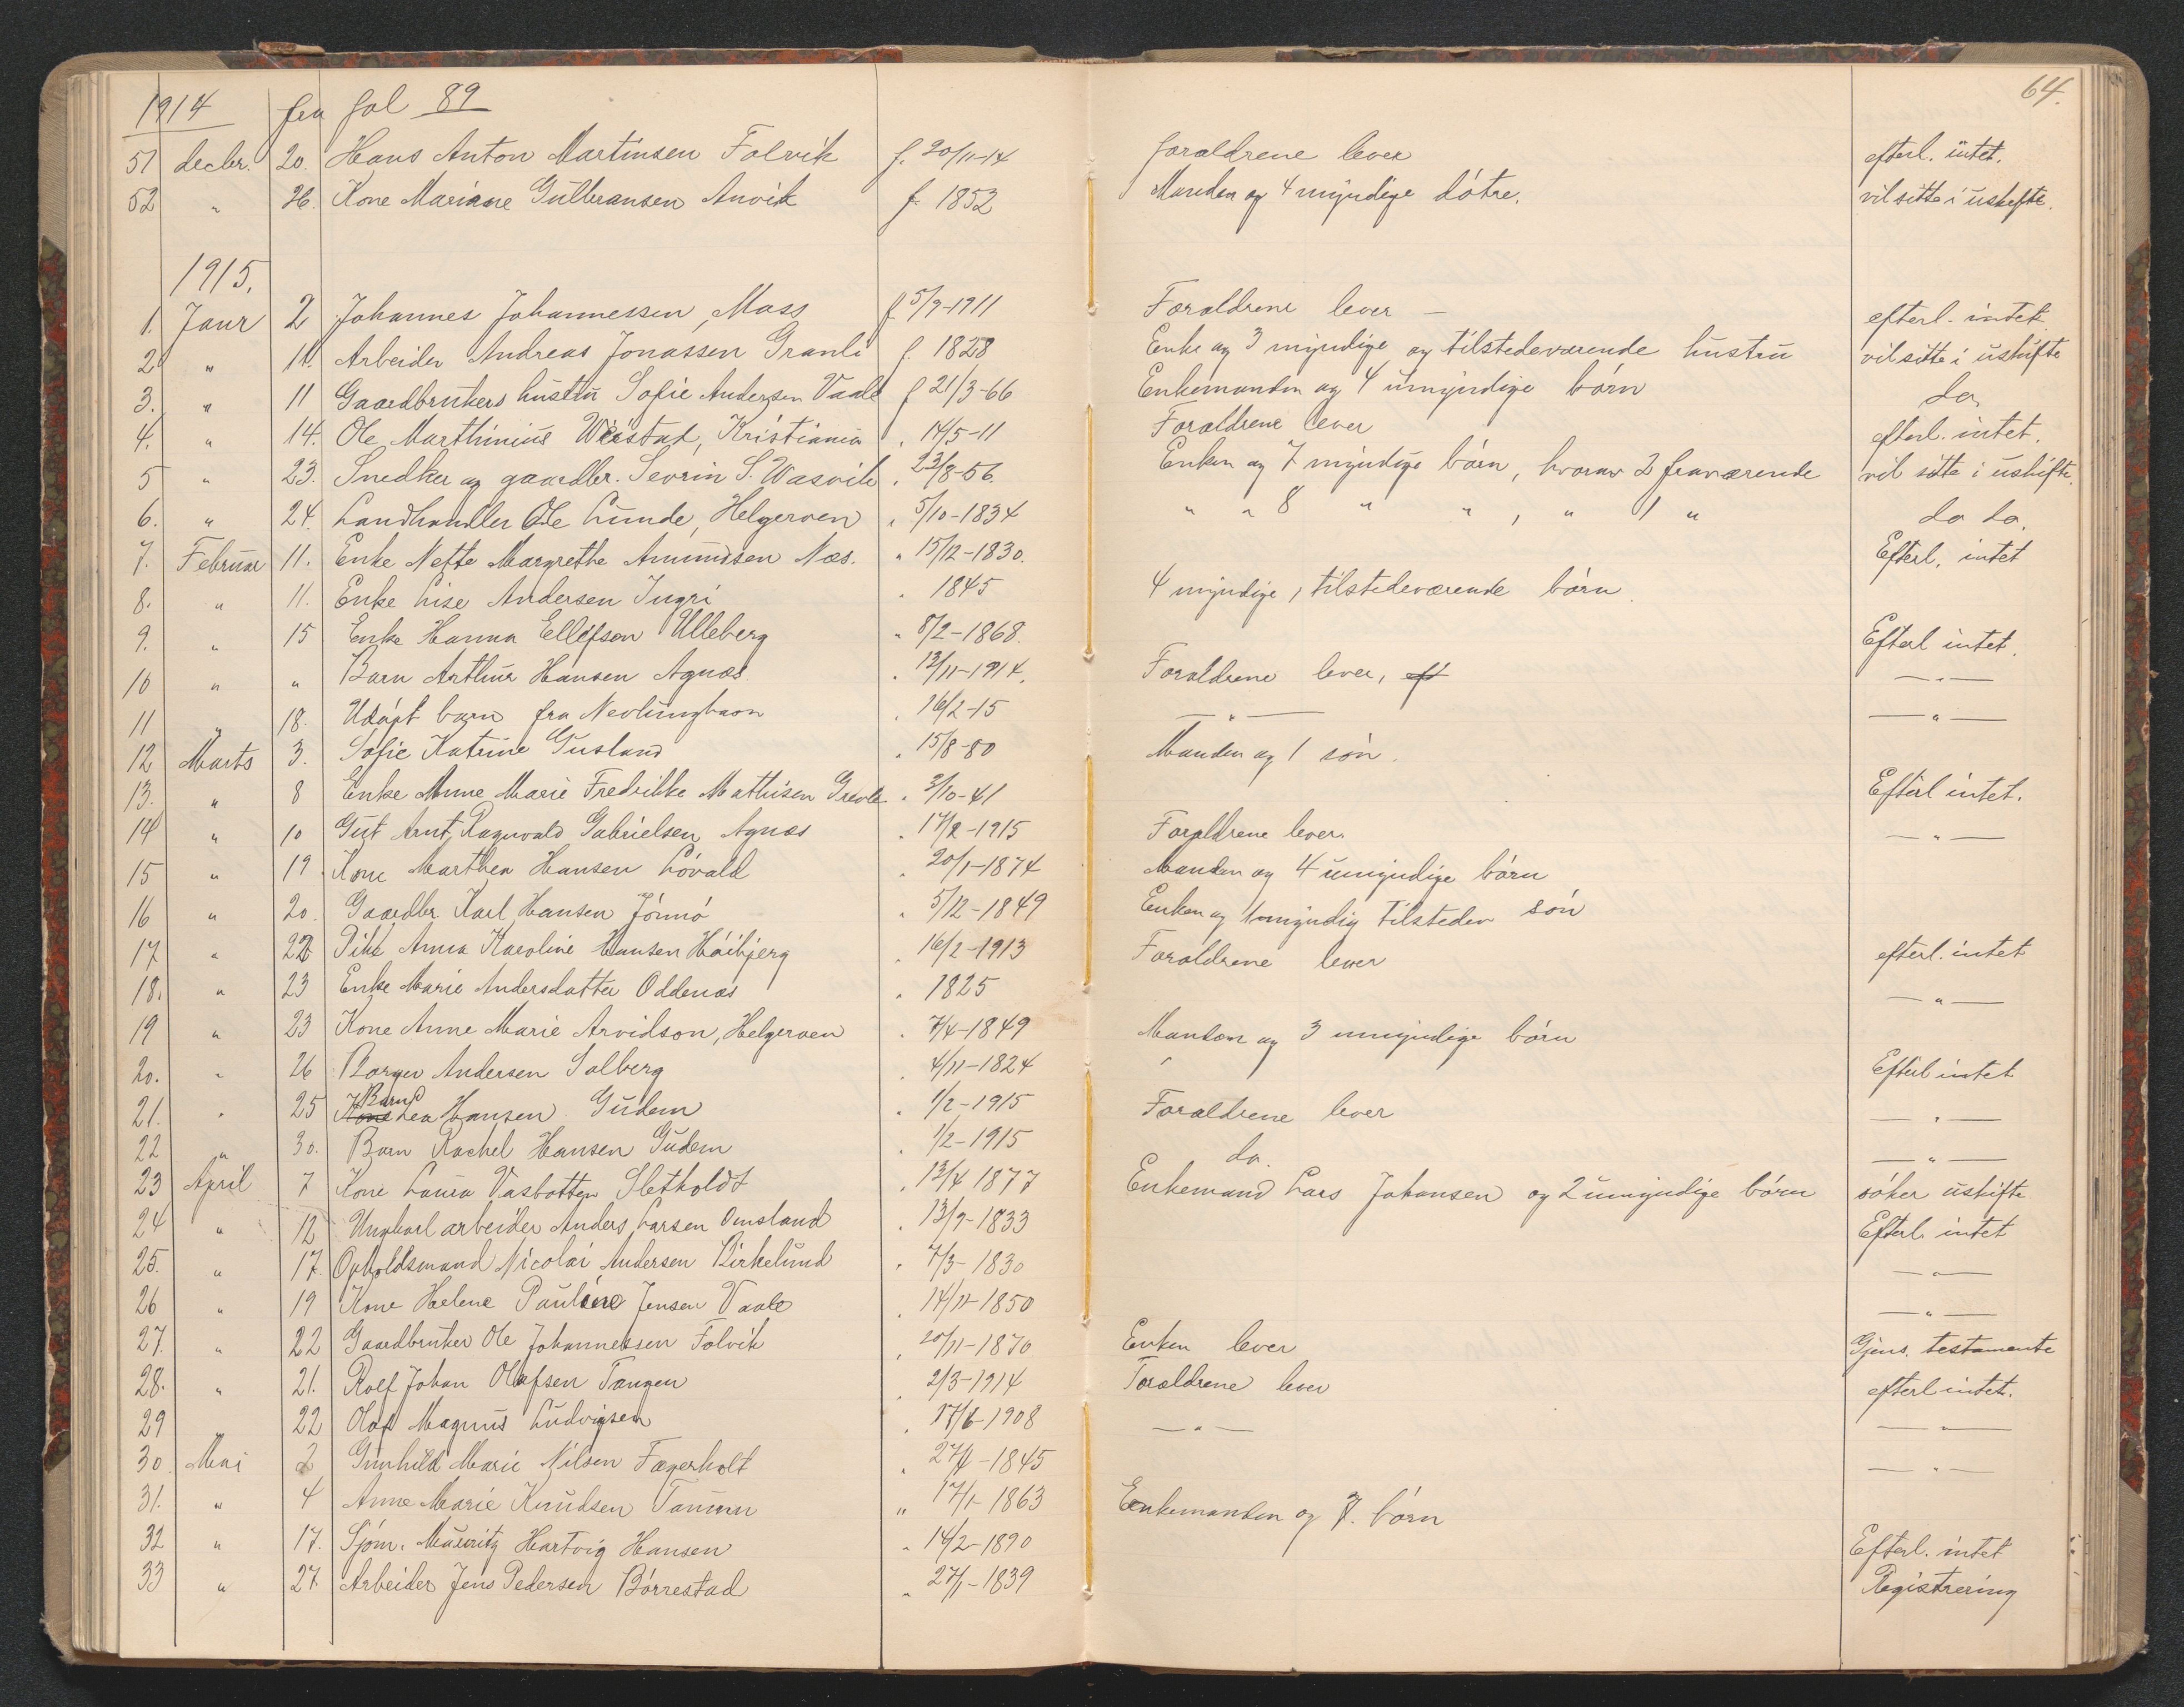 64.
1914 fra fol 89
51 decbr. 20. Hans Anton Martinsen Folvik f. 20/11-14 foraldrene lever efterl. intet.
52 " 26. Kone Mariane Gulbransen Anvik f. 1852 Manden og 4 myndige døtre. vil sitte i uskifte.
1915.
1. Janr 2 Johannes Johannessen, Moss f. 5/9-1911 Foraldrene lever — efterl. intet
2. " 11. Arbeider Andreas Jonassen Granli f. 1828 Enke og 3 myndige og tilstedeværende hustru vil sitte i uskifte
3. " 11 Gaardbrukers hustru Sofie Andersen Vaale f 21/3-66 Enkemanden og 4 umyndige børn do,
4. " 14. Ole Marthinius Weistad, Kristiania " 14/5-11 Foraldrene lever efterl. intet.
5 " 23. Snedker og gaardbr. Sevrin S. Wasvik " 23/8-56. Enken og 7 myndige børn, hvorav 2 fraværende vil sitte i uskifte.
6. " 24. Landhandler Ole Lunde, Helgeroen " 5/10-1834 " " 8 " " , " 1 " do do.
7. Februar 11. Enke Nette Margrethe Amundsen Næs. " 15/12-1830. Efterl. intet
8. " 11. Enke Lise Andersen Jugri " 1845 4 myndige, tilstedeværende børn.
9. " 15 Enke Hanna Ellefsen Ulleberg " 8/2-1868. Efterl intet.
10 " " Barn Arthur Hansen Agnæs " 12/11-1914. Foraldrene lever, ef — " —
11 " 18. Udøpt barn fra Nevlunghavn " 16/2-15 — " — — " —
12 Marts 3. Sofie Katrine Gusland " 15/8-80 Manden og 1 søn.
13. " 8 Enke Anne Marie Fredrikke Mathisen Grevle " 3/10-41 Efterl intet.
14 " 10 Gut Arnt Ragnvald Gabrielsen Agnæs " 17/2-1915 Foraldrene lever. — " —
15 " 19 Kone Marthea Hansen Løvald " 20/1-1874 Manden og 4 umyndige børn
16 " 20. Gaardbr. Karl Hansen Jønnø " 5/12-1849 Enken og 1 myndig tilstedev søn
17 " 22 Pike Anna Karoline Hansen Høibjerg " 16/2-1913 Foraldrene lever efterl. intet
18. " 23 Enke Marie Andersdatter Oddenæs " 1825 — " —
19 " 23 Kone Anne Marie Arvidson, Helgeroen " 7/4-1849 Manden og 3 umyndige børn
20. " 26 Borger Andersen Solberg " 4/11-1824 Efterl intet
21. " 25 Kone Barn Lea Hansen Gudem " 1/2-1915 Foraldrene lever — " —
22 " 30. Barn Rachel Hansen Gudem " 1/2-1915 do. — " —
23 April 7 Kone Laura Vasbotten Sletholdt " 13/4 1877 Enkemand Lars Johansen og 2 umyndige børn søker uskifte
24 " 12 Ungkarl arbeider Anders Larsen Omsland " 13/9-1833 Efterl. intet
25. " 17. Opholdsmand Nicolai Andersen Birkelund " 7/3-1830 — " —
26 " 19 Kone Helene Pauline Jensen Vaale " 14/11-1850 — " —
27. " 22 Gaardbruker Ole Johannessen Folvik " 20/11-1870 Enken lever Gjens. testamente
28. " 21. Rolf Johan Olafsen Tangen " 2/3-1914 Foraldrene lever efterl intet.
29 " 22 Olaf Magnus Ludvigsen " 17/6-1908 — " — — " —
30 Mai 2 Gunhild Marie Nilsen Fagerholt " 27/4-1845 — " —
31. " 4 Anne Marie Knudsen Tanum " 17/1-1863 Enkemanden og 7. børn
32 " 17. Sjøm. Mauritz Hartvig Hansen " 14/2-1890 Efterl. intet
33 " 27. Arbeider Jens Pedersen Børrestad " 27/1-1839 Registrering